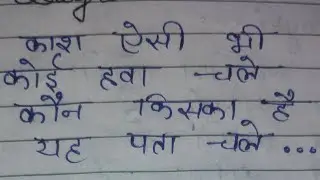 काश ऐसी भी
कोई हवा चले
कौन किसका है
यह पता चले ...